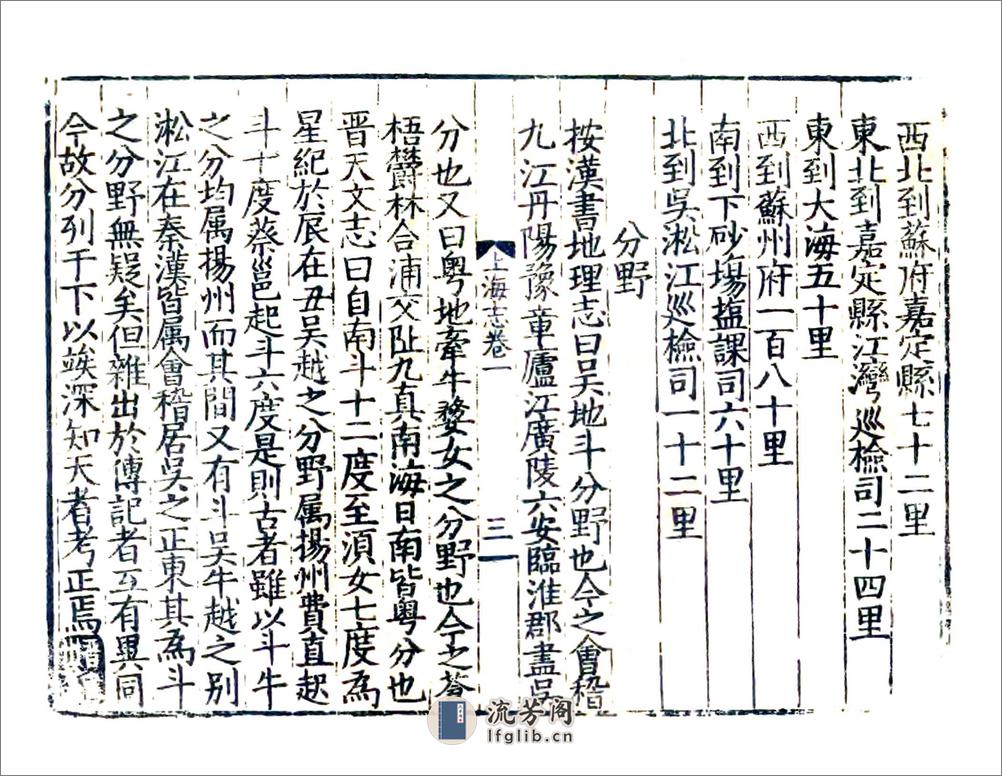 西北到蘇府嘉定縣七十二里
東北到嘉定縣江灣巡檢司二十四里
東到大海五十里
西到蘇州府一百八十里
南到下砂場鹽課司六十里
北到吳淞江巡檢司一十二里
分野
按漢書地理志曰吳地斗分野也今之會稽
九江丹陽豫章廬江廣陵六安臨淮郡盡吳
上海志卷一
三
分也又曰粵地牽牛婺女之分野也今之蒼
梧欝林合浦交阯九真南海日南皆粵分也
晉天文志曰自南斗十二度至湏女七度為
星紀於辰在丑吳越之分野属揚州費直起
斗十度蔡邕起斗六度是則古者雖以斗牛
之分均属楊州而其間又有斗吳牛越之別
淞江在秦漢皆属會稽居吳之正東其為斗
之分野無疑矣但雜出於傳記者互有異同
今故分列于下以竢深知天者考正焉
流芳阁
lfglib.cn